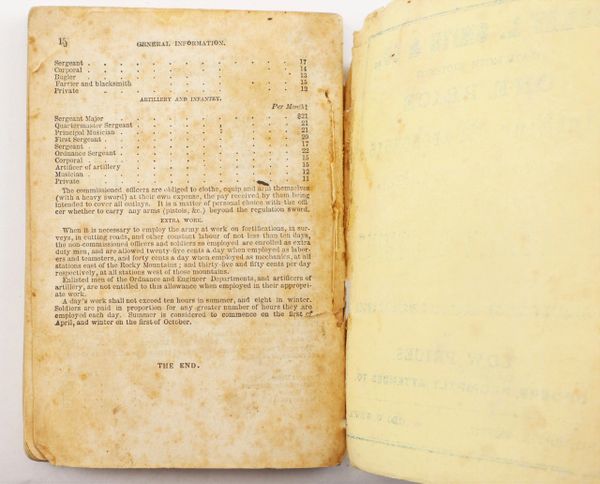 GENERAL INFORMATION.
Sergeant . . . . . . . . . . 17
Corporal . . . . . . . . . . 14
Bugler . . . . . . . . . . 13
Farrier and blacksmith . . . . . . . . 15
Private . . . . . . . . . . 12
ARTILLERY AND INFANTRY.
Per Month
Sergeant Major . . . . . . . . . $21
Quartermaster Sergeant . . . . . . . . 21
Principal Musician . . . . . . . . 21
First Sergeant . . . . . . . . . 20
Sergeant . . . . . . . . . . 17
Ordnance Sergeant . . . . . . . . . 22
Corporal . . . . . . . . . . 15
Artificer of artillery . . . . . . . . 15
Musician . . . . . . . . . . 12
Private . . . . . . . . . . 11
The commissioned officers are obliged to clothe, equip and arm themselves
(with a heavy sword) at their own expense, the pay received by them being
intended to cover all outlays. It is a matter of personal choice with the offi-
cer whether to carry any arms (pistols, &c.) beyond the regulation sword.
EXTRA WORK.
When it is necessary to employ the army at work on fortifications, in sur-
veys, in cutting roads, and other constant labour of not less than ten days,
the non-commissioned officers and soldiers so employed are enrolled as extra
duty men, and are allowed twenty-five cents a day when employed as labor-
ers and teamsters, and forty cents a day when employed as mechanics, at all
stations east of the Rocky Mountains; and thirty-five and fifty cents per day
respectively, at all stations west of those mountains.
Enlisted men of the Ordnance and Engineer Departments, and artificers of
artillery, are not entitled to this allowance when employed in their appropri-
ate work.
A day's work shall not exceed ten hours in summer, and eight in winter.
Soldiers are paid in proportion for any greater number of hours they are
employed each day. Summer is considered to commence on the first of
April, and winter on the first of October.
THE END.
LOW PRICES
PROMPTLY ATTENDED TO